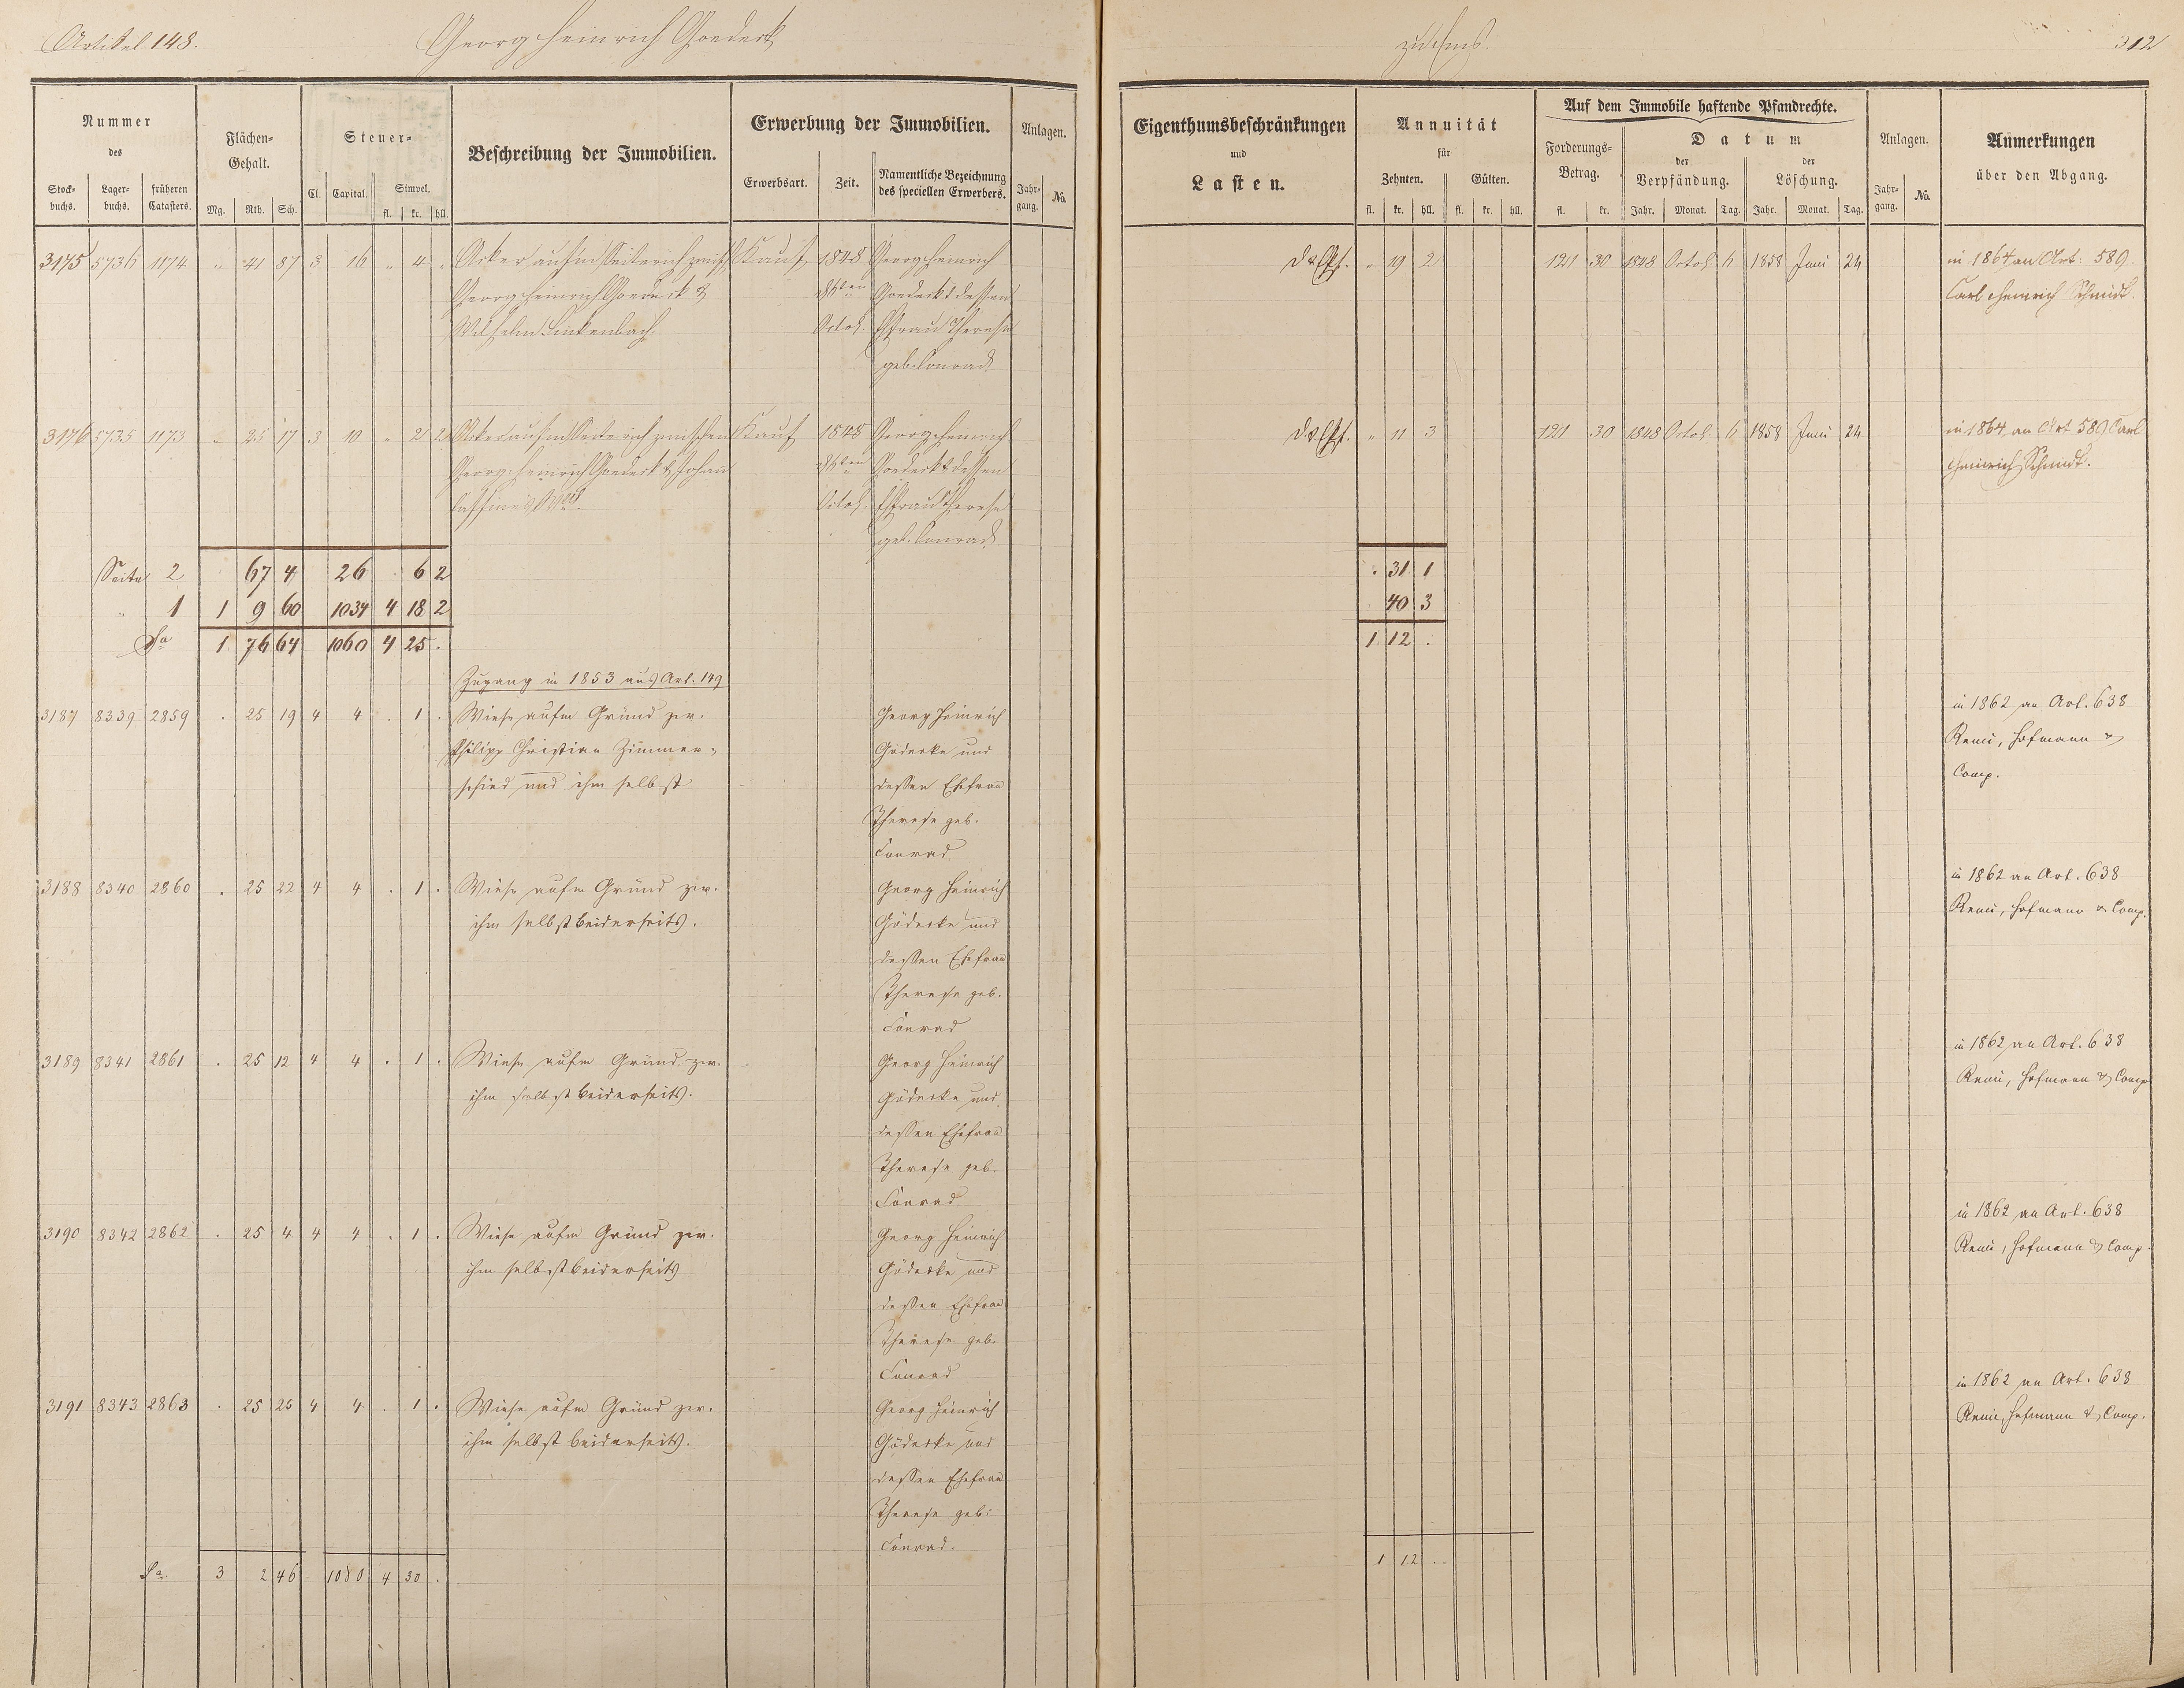 Artikel 148. Georg Heinrich Goedeck zu Ems. 312
Nummer
des
Stock-
buchs.
Lager-
buchs.
früheren
Catasters.
Flächen-
Gehalt.
Mg. Rth. Sch.
Steuer-
Cl. Capital. Simpel.
fl. kr. hll.
Beschreibung der Immobilien.
Erwerbung der Immobilien.
Erwerbsart. Zeit. Namentliche Bezeichnung
des speciellen Erwerbers.
Anlagen.
Jahr-
gang. No.
Eigenthumsbeschränkungen
und
Lasten.
Annuität
für
Zehnten. Gülten.
fl. kr. hll. fl. kr. hll.
Auf dem Immobile haftende Pfandrechte.
Forderungs-
Betrag.
fl. kr.
Datum
der
Verpfändung.
Jahr. Monat. Tag.
der
Löschung.
Jahr. Monat. Tag.
Anlagen.
Jahr-
gang. No.
Anmerkungen
über den Abgang.
3175 5736 1174 " 41 87 3 16 " 4 " Acker aufm Seiterich zwisch Kauf 1848 Georg Heinrich
Georg Heinrich Goedeck & Goedeck & dessen
Wilhelm Linkenbach Octob. Ehfrau Therese
geb. Conrad
" 19 2 121 30 1848 Octob. 6 1858 Juni 24 in 1864 an Art: 589
Carl Heinrich Schmidt.
3176 5735 1173 " 25 17 3 10 " 2 2 Acker aufm Seiterich zwischen Kauf 1848 Georg Heinrich
Georg Heinrich Goedeck & Johan Goedeck & dessen
Octob. Ehfrau Therese
geb. Conrad
" 11 3 121 30 1848 Octob. 6 1858 Juni 24 in 1864 an Art 589 Carl
Heinrich Schmidt.
Seite 2 67 4 26 6 2 . 31 1
" 1 1 9 60 1034 4 18 2 40 3
Sa 1 76 64 1060 4 25 . 1 12 .
Zugang in 1853 aus Art. 149
3187 8339 2859 . 25 19 4 4 . 1 . Wiese aufm Grund zw. Georg Heinrich
Philipp Christian Zimmer- Gödecke und
schied und ihm selbst dessen Ehefrau
Therese geb.
Conrad
in 1862 an Art. 638
Remi, Hofmann &
Comp.
3188 8340 2860 . 25 22 4 4 . 1 . Wiese aufm Grund zw. Georg Heinrich
ihm selbst beiderseits. Gödecke und
dessen Ehefrau
Therese geb.
Conrad
in 1862 an Art. 638
Remi, Hofmann & Comp.
3189 8341 2861 . 25 12 4 4 . 1 . Wiese aufm Grund zw. Georg Heinrich
ihm selbst beiderseits. Gödecke und
dessen Ehefrau
Therese geb.
Conrad
in 1862 an Art. 638
Remi, Hofmann & Comp
3190 8342 2862 . 25 4 4 4 . 1 . Wiese aufm Grund zw. Georg Heinrich
ihm selbst beiderseits Gödecke und
dessen Ehefrau
Therese geb.
Conrad
in 1862 an Art. 638
Remi, Hofmann & Comp.
3191 8343 2863 . 25 25 4 4 . 1 . Wiese aufm Grund zw. Georg Heinrich
ihm selbst beiderseits. Gödecke und
dessen Ehefrau
Therese geb:
Conrad.
in 1862 an Art. 638
Remi, Hofmann & Comp.
Sa. 3 2 46 1080 4 30 . 1 12 .